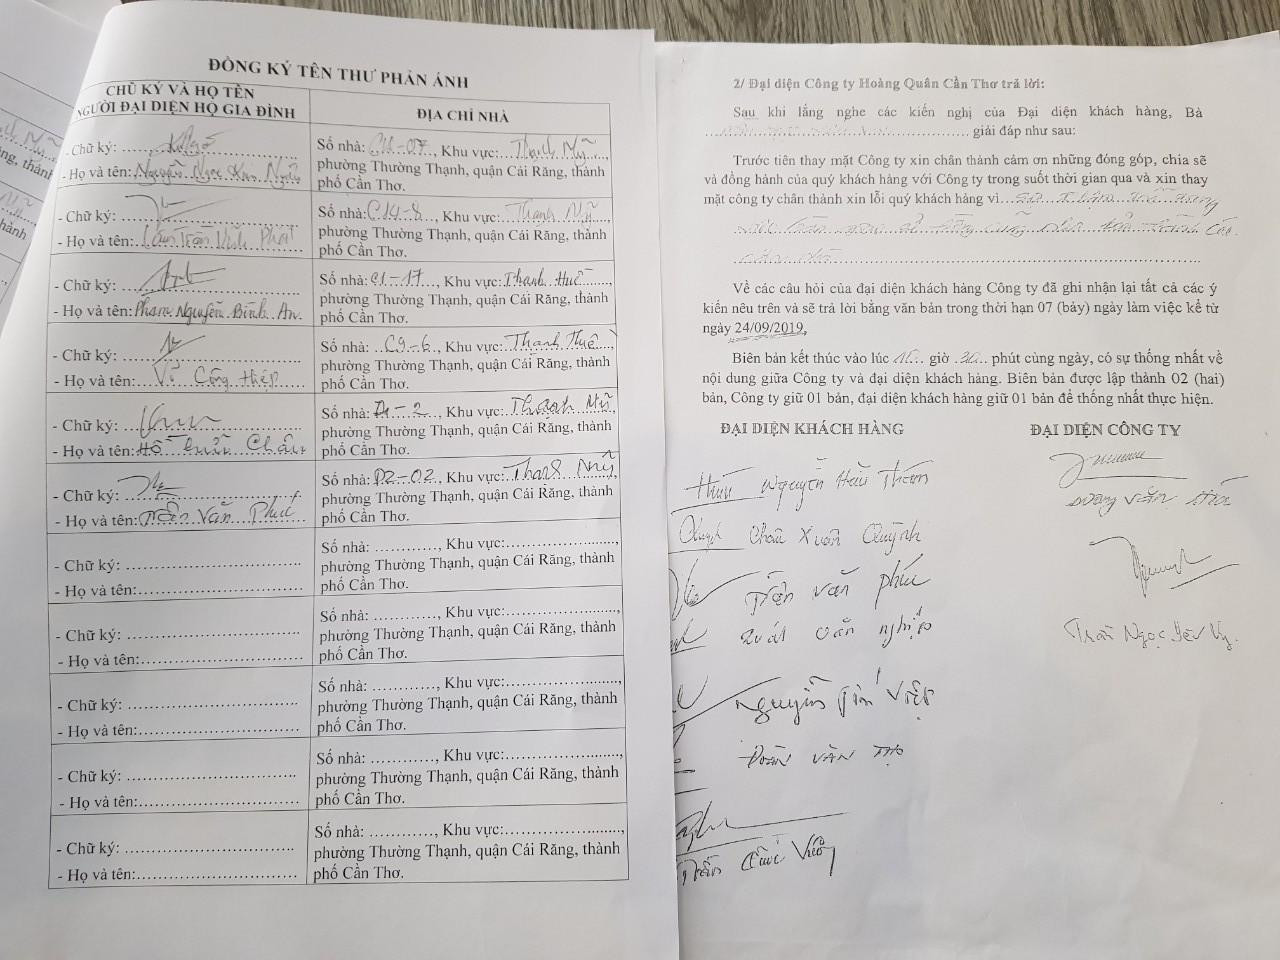 ĐỒNG KÝ TÊN THƯ PHẢN ÁNH
CHỮ KÝ VÀ HỌ TÊN
NGƯỜI ĐẠI DIỆN HỘ GIA ĐÌNH
ĐỊA CHỈ NHÀ
- Chữ ký:
- Họ và tên: Nguyễn Ngọc Kim Ngân
Số nhà: C11-07, Khu vực: Thạnh Mỹ,
phường Thường Thạnh, quận Cái Răng, thành
phố Cần Thơ.
- Chữ ký:
- Họ và tên: Lâm Trần Vĩnh Phát
Số nhà: C14-8, Khu vực: Thạnh Mỹ,
phường Thường Thạnh, quận Cái Răng, thành
phố Cần Thơ.
- Chữ ký:
- Họ và tên: Phạm Nguyễn Bình An.
Số nhà: C1-17, Khu vực: Thạnh Huề,
phường Thường Thạnh, quận Cái Răng, thành
phố Cần Thơ.
- Chữ ký:
- Họ và tên: Võ Công Hiệp
Số nhà: C9-6, Khu vực: Thạnh Huề,
phường Thường Thạnh, quận Cái Răng, thành
phố Cần Thơ.
- Chữ ký:
- Họ và tên: Hồ Châu
Số nhà: D1-2, Khu vực: Thạnh Mỹ,
phường Thường Thạnh, quận Cái Răng, thành
phố Cần Thơ.
- Chữ ký:
- Họ và tên: Trần Văn Phúc
Số nhà: D2-02, Khu vực: Thạnh Mỹ,
phường Thường Thạnh, quận Cái Răng, thành
phố Cần Thơ.
- Chữ ký: ..............................
- Họ và tên:............................
Số nhà: ............, Khu vực:......................,
phường Thường Thạnh, quận Cái Răng, thành
phố Cần Thơ.
- Chữ ký: ..............................
- Họ và tên:............................
Số nhà: ............, Khu vực:......................,
phường Thường Thạnh, quận Cái Răng, thành
phố Cần Thơ.
- Chữ ký: ..............................
- Họ và tên:............................
Số nhà: ............, Khu vực:......................,
phường Thường Thạnh, quận Cái Răng, thành
phố Cần Thơ.
- Chữ ký: ..............................
- Họ và tên:............................
Số nhà: ............, Khu vực:......................,
phường Thường Thạnh, quận Cái Răng, thành
phố Cần Thơ.
- Chữ ký: ..............................
- Họ và tên:............................
Số nhà: ............, Khu vực:......................,
phường Thường Thạnh, quận Cái Răng, thành
phố Cần Thơ.
2/ Đại diện Công ty Hoàng Quân Cần Thơ trả lời:
Sau khi lắng nghe các kiến nghị của Đại diện khách hàng, Bà
giải đáp như sau:
Trước tiên thay mặt Công ty xin chân thành cảm ơn những đóng góp, chia sẽ
và đồng hành của quý khách hàng với Công ty trong suốt thời gian qua và xin thay
mặt công ty chân thành xin lỗi quý khách hàng vì
Về các câu hỏi của đại diện khách hàng Công ty đã ghi nhận lại tất cả các ý
kiến nêu trên và sẽ trả lời bằng văn bản trong thời hạn 07 (bảy) ngày làm việc kể từ
ngày 24/09/2019.
Biên bản kết thúc vào lúc 16 giờ 30 phút cùng ngày, có sự thống nhất về
nội dung giữa Công ty và đại diện khách hàng. Biên bản được lập thành 02 (hai)
bản, Công ty giữ 01 bản, đại diện khách hàng giữ 01 bản để thống nhất thực hiện.
ĐẠI DIỆN KHÁCH HÀNG
ĐẠI DIỆN CÔNG TY
Nguyễn Hữu
Châu Xuân Quỳnh
Trần Văn Phúc
Quách Văn Nghiệp
Nguyễn Việt
Đoàn Văn Thọ
Dương Văn
Trần Ngọc